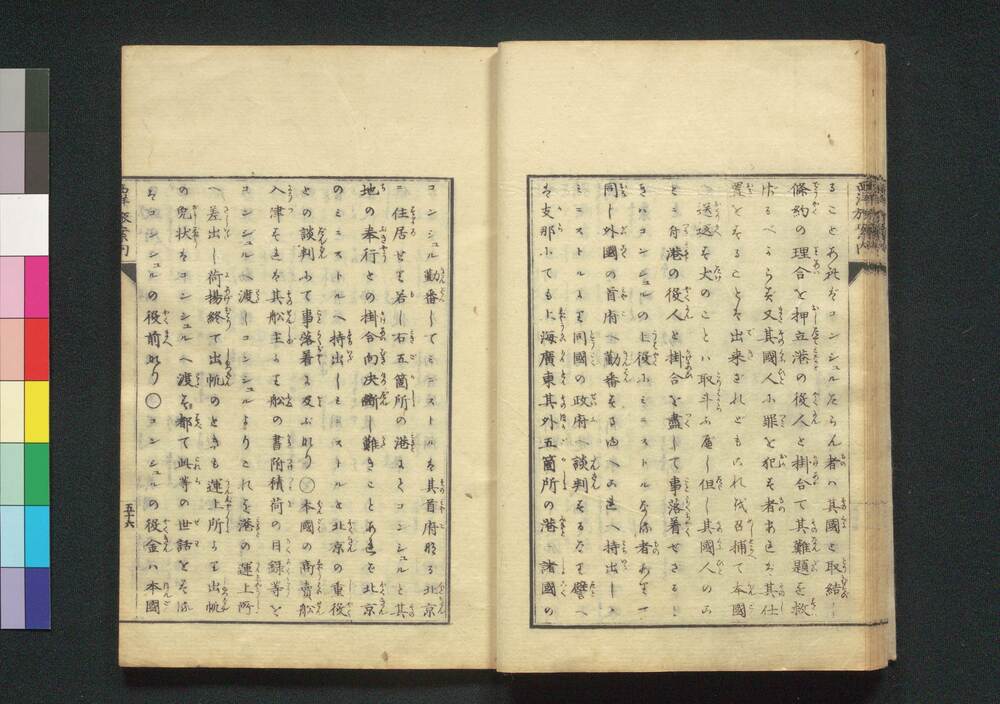 西洋旅案内
ることあれバコンシュルたらん者ハ其國と取結し
條約の理合を押立港の役人と掛合て其難題を救
ハざるべからず又其國人小罪を犯す者あれバ其仕
置をすることを出来ざれどもこれを召捕て本國
へ送返す丈のことハ取斗ふ庵し但し其國人のこ
とを舟港の役人と掛合を盡して事落着せざると
きハコンシュルの上役にミニストルなる者ありて
同しく外國の首府へ勤番するゆへこれへ持出しミ
ニストルより其國の政府へ談判するなり譬へ
バ支那にても上海廣東其外五箇所の港へ諸國の
コンシュル勤番してミニストルは其首府なる北京
に住居せり若し右五箇所の港にてコンシュルと其
地の奉行との掛合向決断し難きことあれバ北京
のミニストルへ持出しミニストルと北京の重役
との談判にて事落着に及ぶなり○本國の商賣船
入津すれバ其船主より船の書附積荷の目録等を
コンシュルへ渡しコンシュルよりこれを港の運上所
へ差出し荷揚終て出帆のときも運上所より出帆
の免状をコンシュルへ渡す都て此等の世話をする
はコンシュルの役前なり○コンシュルの役金ハ本國
西洋旅案内
五十六